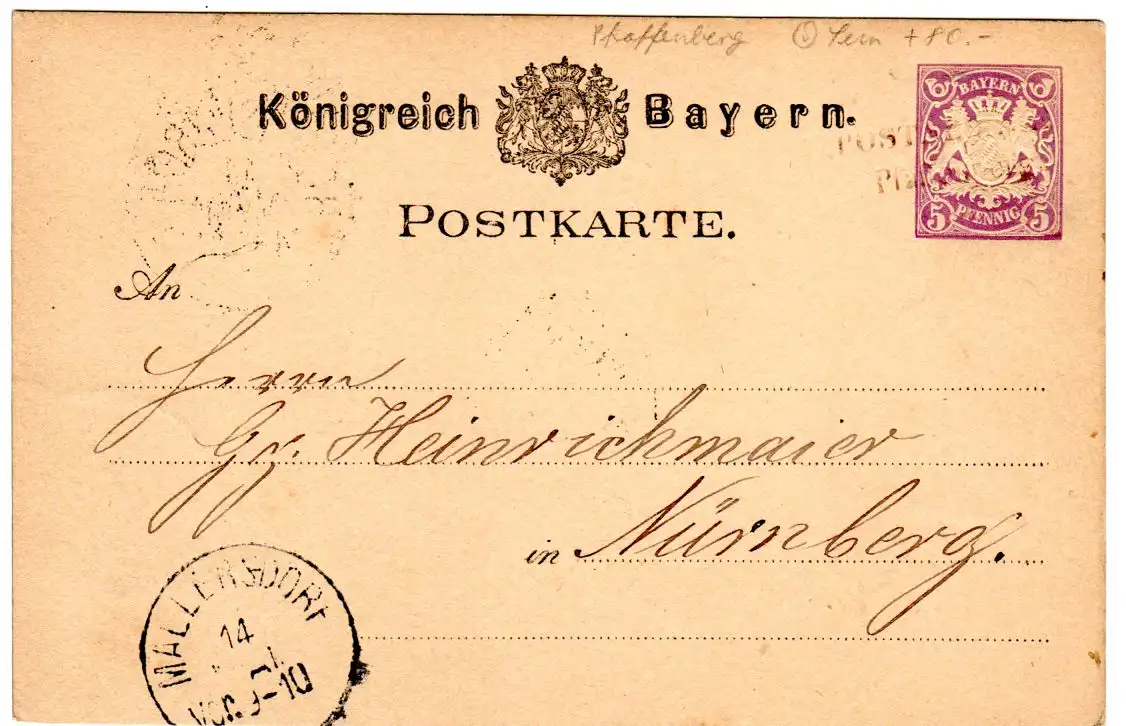 Pfaffenberg
+80.-
Königreich Bayern.
BAYERN
5 PFENNIG 5
POST
POSTKARTE.
An
Herrn
Gg. Heinrichmaier
in Nürnberg.
MALLERSDORF
14
9-10